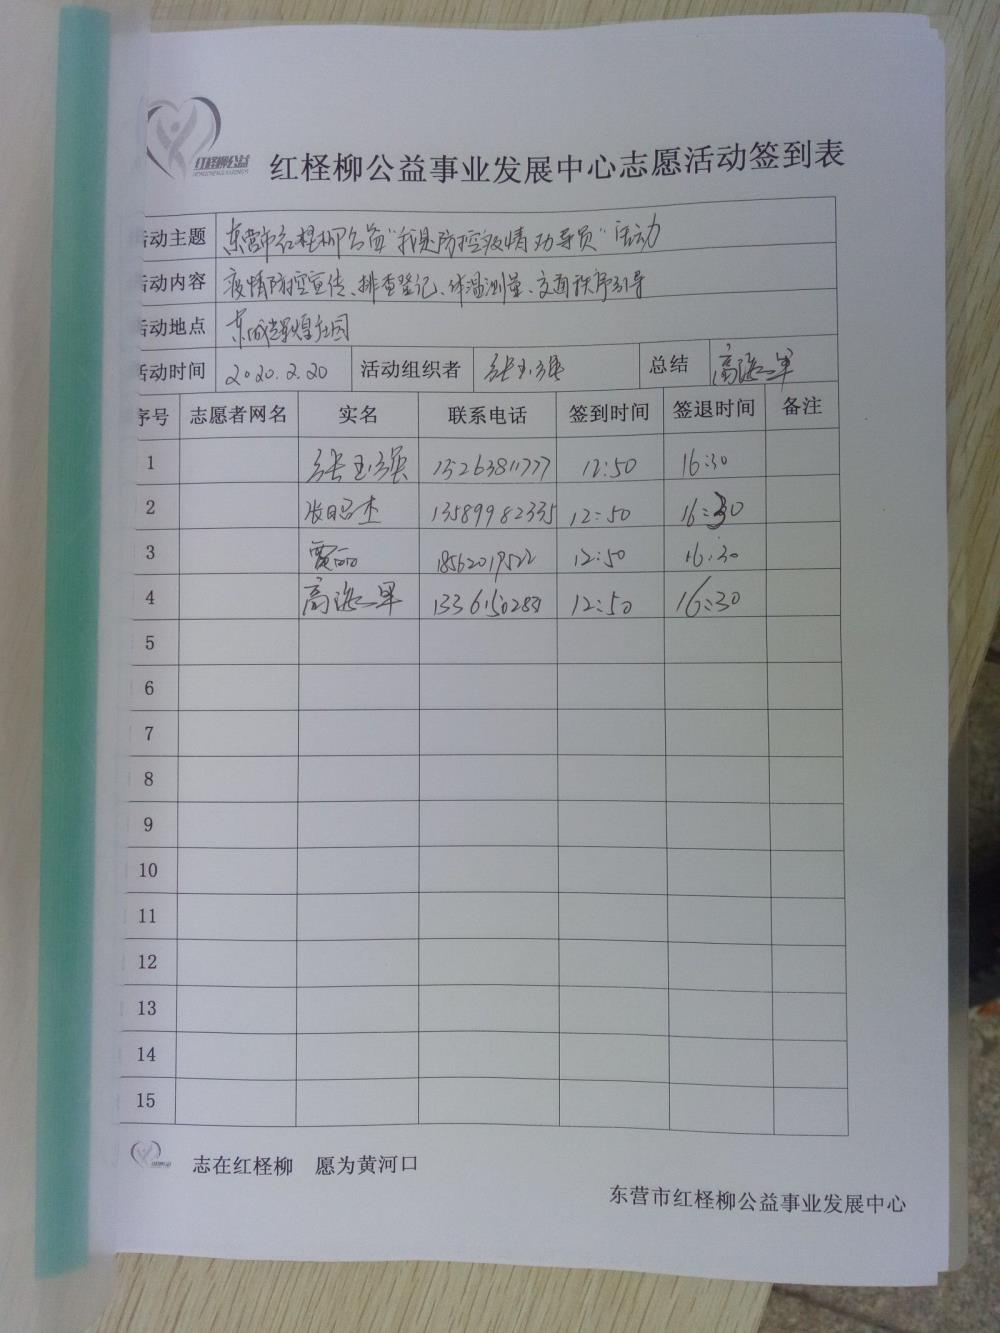 红柽柳公益
红柽柳公益事业发展中心志愿活动签到表
活动主题 东营市红柽柳公益“我是防控疫情劝导员”活动
活动内容 疫情防控宣传、排查登记、体温测量、交通秩序引导
活动地点 东城
活动时间 2020.2.20 活动组织者 张玉强 总结 高海军
序号 志愿者网名 实名 联系电话 签到时间 签退时间 备注
1 张玉强 15263811777 12:50 16:30
2 13589982335 12:50 16:30
3 18562019522 12:50 16:30
4 高海军 12:50 16:30
5
6
7
8
9
10
11
12
13
14
15
志在红柽柳 愿为黄河口
东营市红柽柳公益事业发展中心